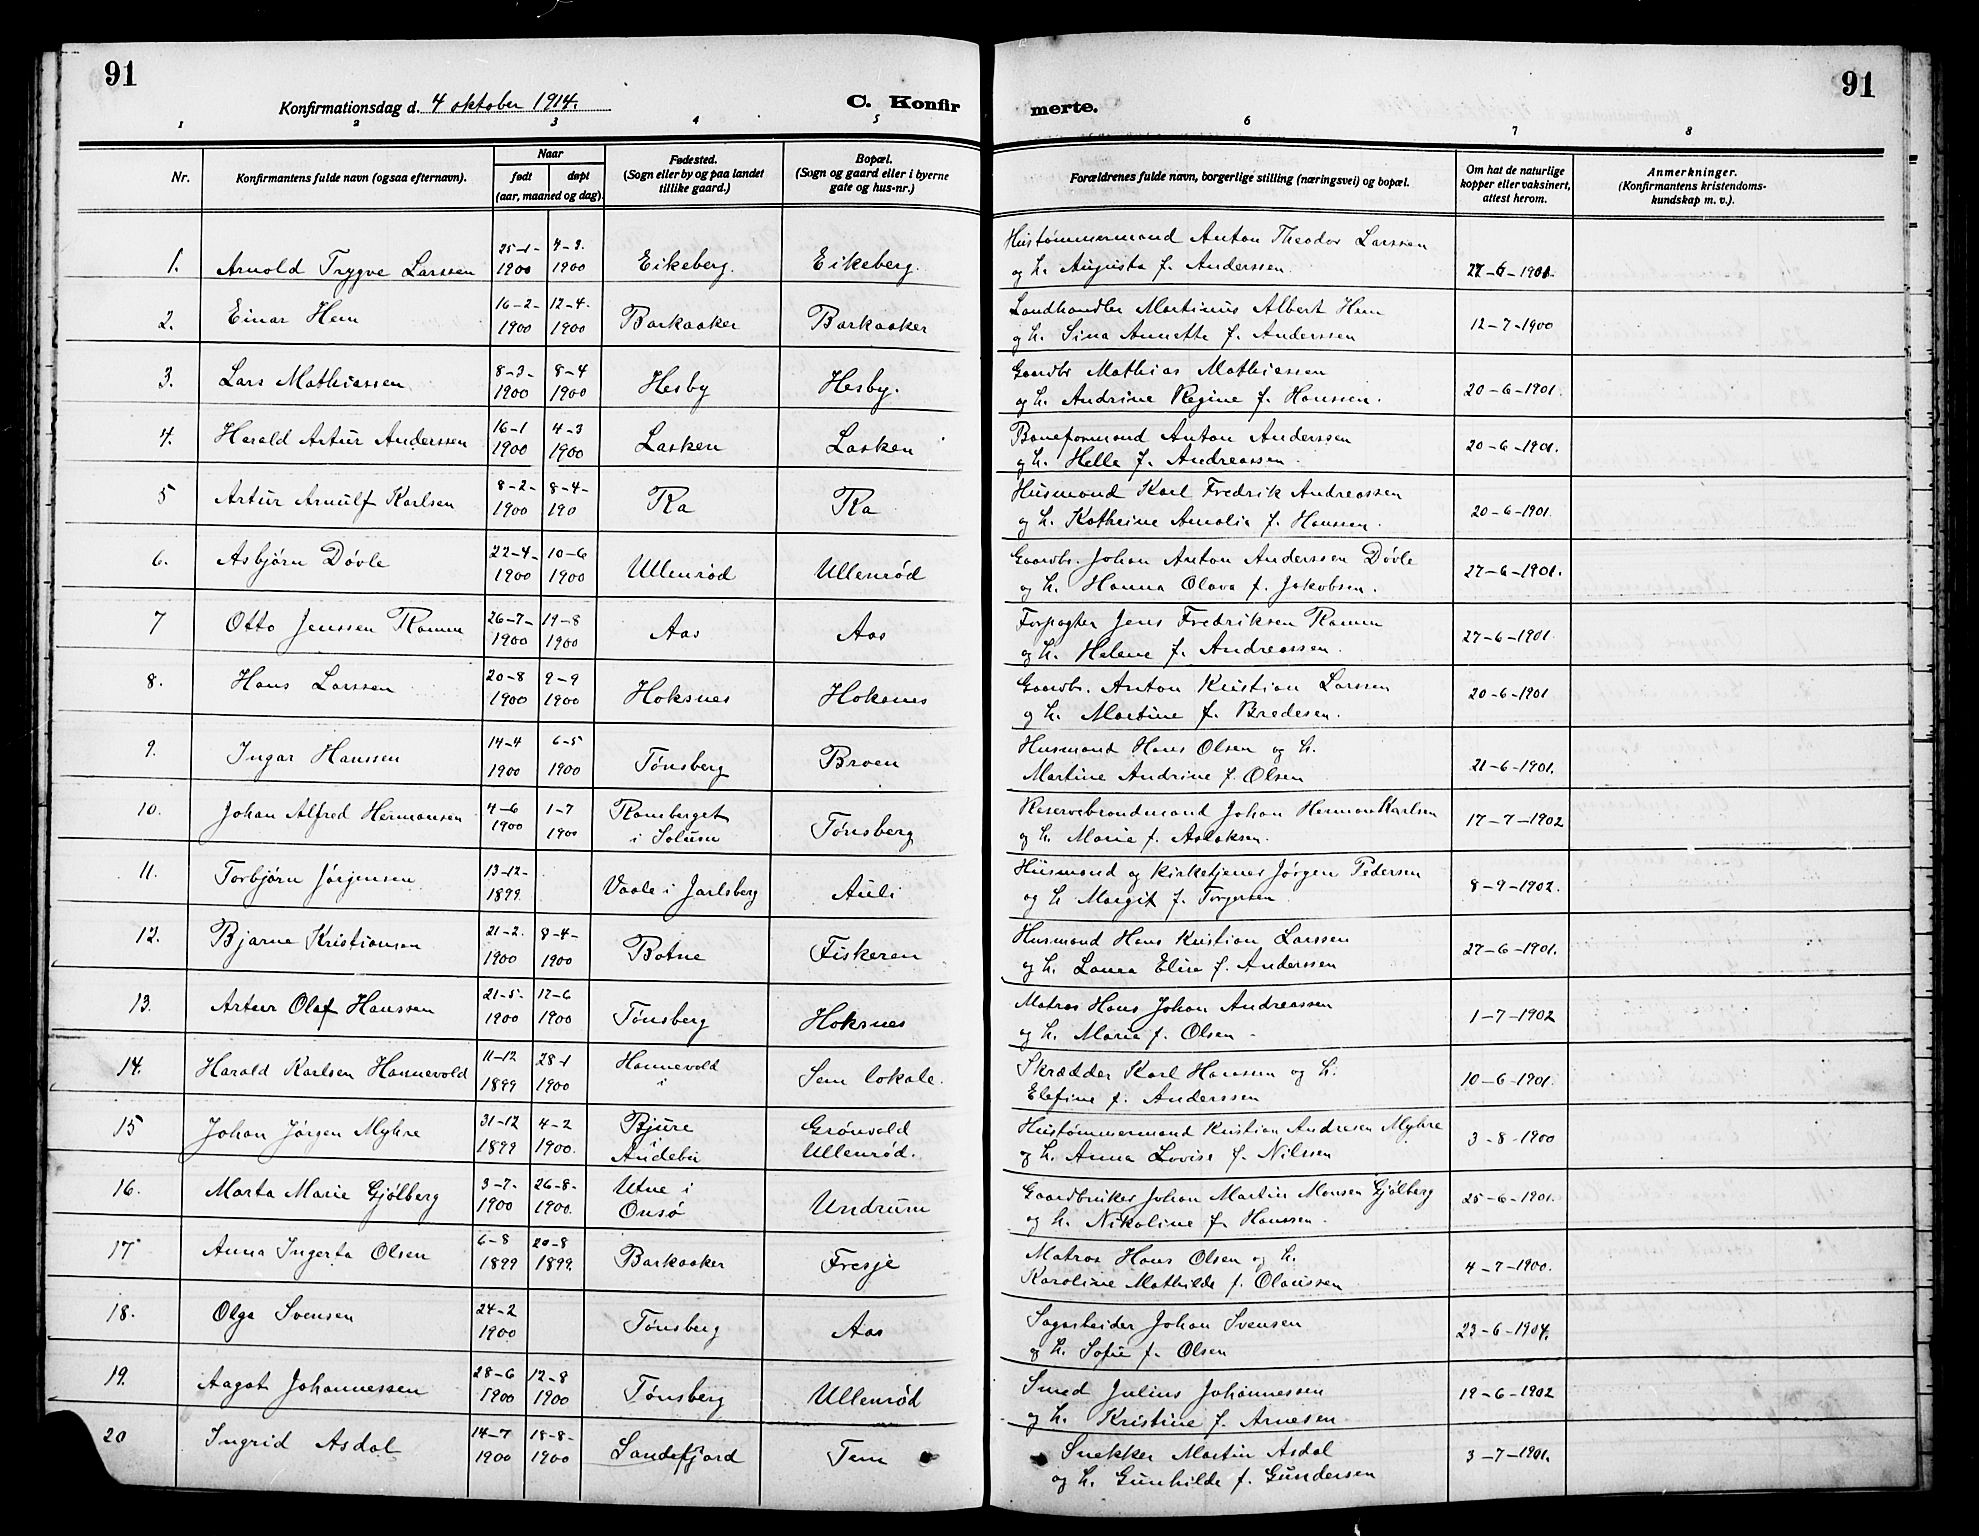 91
91
Konfirmationsdag d. 4 oktober 1914.
C. Konfir
merte.
1 2 3 4 5 6 7 8
Nr.
Konfirmantens fulde navn (ogsaa efternavn).
Naar
født døpt
(aar, maaned og dag)
Fødested.
(Sogn eller by og paa landet
tillike gaard.)
Bopæl.
(Sogn og gaard eller i byerne
gate og hus-nr.)
Forældrenes fulde navn, borgerlige stilling (næringsvei) og bopæl.
Om hat de naturlige
kopper eller vaksinert,
attest herom.
Anmerkninger.
(Konfirmantens kristendoms-
kundskap m. v.).
25-1- 4-3. Hustømmermand Anton Theodor Larssen
1. Arnold Trygve Larssen 1900 1900 Eikeberg. Eikeberg. og h. Augusta f. Anderssen. 27-6-1901.
16-2- 12-4- Landhandler Martinus Albert Hem
2. Einar Hem 1900 1900 Barkaaker Barkaaker og h. Sina Annette f. Anderssen 12-7-1900
8-3- 8-4 Gaardbr Mathias Mathiassen
3. Lars Mathiassen 1900 1900 Hesby Hesby. og h. Andrine Regine f. Hanssen. 20-6-1901.
16-1 4-3 Baneformand Anton Anderssen
4. Harald Artur Anderssen 1900 1900 Lasken Lasken og h. Helle f. Andreassen. 20-6-1901.
8-2- 8-4- Husmand Karl Fredrik Andreassen
5 Artur Arnulf Karlsen 1900 190 Ra Ra og h. Kathrine Amalie f. Hanssen. 20-6-1901.
22-4- 10-6 Gaardbr. Johan Anton Anderssen Døvle
6. Asbjørn Døvle 1900 1900 Ullenrød Ullenrød og h. Hanna Olava f. Jakobsen. 27-6-1901.
26-7- 19-8 Forpagter Jens Fredriksen Ramm
7 Otto Jenssen Ramm 1900 1900 Aas Aas og h. Helene f. Andreassen. 27-6-1901.
20-8 9-9 Gaardbr. Anton Kristian Larssen
8. Hans Larssen 1900 1900 Hoksnes Hoksnes og h. Martine f. Bredesen. 20-6-1901
14-4 6-5 Husmand Hans Olsen og h.
9. Ingar Hanssen 1900 1900 Tønsberg Broen Martine Andrine f. Olsen 21-6-1901.
4-6 1-7 Ramberget Reservebrandmand Johan Herman Karlsen
10. Johan Alfred Hermansen 1900 1900 i Solum Tønsberg og h. Marie f. Aslaksen. 17-7-1902
13-12- Husmand og kirketjener Jørgen Pedersen
11. Torbjørn Jørgensen 1899. Vaale i Jarlsberg Auli og h Margit f. Torgersen. 8-9-1902.
21-2. 8-4- Husmand Hans Kristian Larssen
12. Bjarne Kristiansen 1900 1900 Botne Fiskeren og h. Laura Elise f. Anderssen 27-6-1901.
21-5- 17-6 Matros Hans Johan Andreassen
13. Artur Olaf Hanssen 1900 1900 Tønsberg Hoksnes og h. Marie f. Olsen. 1-7-1902
11-12 28-1 Hannevold Skrædder Karl Hanssen og h.
14. Harald Karlsen Hannevold 1899 1900 i Sem lokale. Elefine f. Anderssen 10-6-1901.
31-12 4-2 Bjure Grønvold Hustømmermand Kristian Andresen Myhre
15 Johan Jørgen Myhre 1899 1900. i Andebu Ullenrød. og h. Anna Lovise f. Nilssen 3-8-1900
3-7- 26-8- Utne i Gaardbruker Johan Martin Monsen Gjølberg
16. Marta Marie Gjølberg 1900 1900. Onsø Undrum og h. Nikoline f. Hanssen. 25-6-1901.
6-8 20-8 Matros Hans Olsen og h.
17 Anna Ingerta Olsen 1899 1899. Barkaaker Fresje Karoline Mathilde f. Olaussen 4-7-1900.
24-2 Sagarbeider Johan Svensen
18. Olga Svensen 1900 Tønsberg Aas og h. Sofie f. Olsen 23-6-1904.
28-6 12-8 Smed Julius Johannessen
19. Aagot Johannessen 1900 1900 Tønsberg Ullenrød og h. Kristine f. Arnesen. 19-6-1902
14-7 18-8- Snekker Martin Asdal
20 Ingrid Asdal 1900 1900 Sandefjord Tem og h. Gunhilde f. Gundersen 3-7-1901.